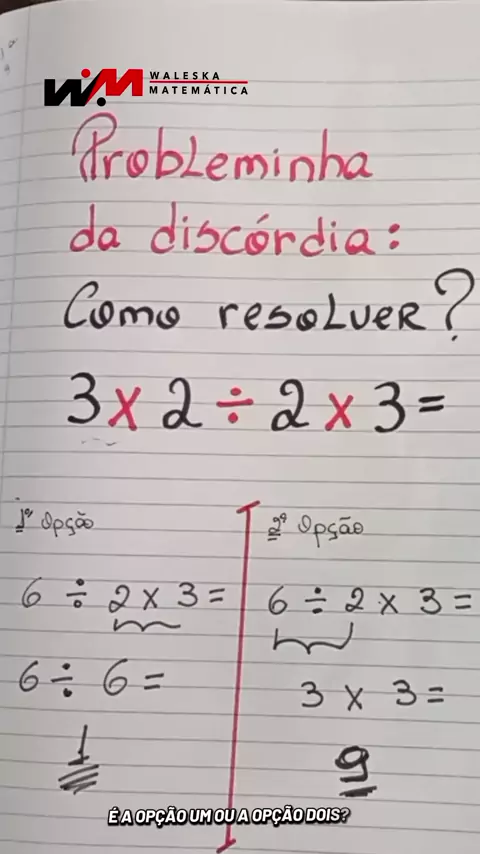 WM WALESKA
MATEMÁTICA
Probleminha
da discórdia:
Como resolver?
3 x 2 ÷ 2 x 3 =
1ª Opção
6 ÷ 2 x 3 =
6 ÷ 6 =
1
2ª Opção
6 ÷ 2 x 3 =
3 x 3 =
9
É A OPÇÃO UM OU A OPÇÃO DOIS?